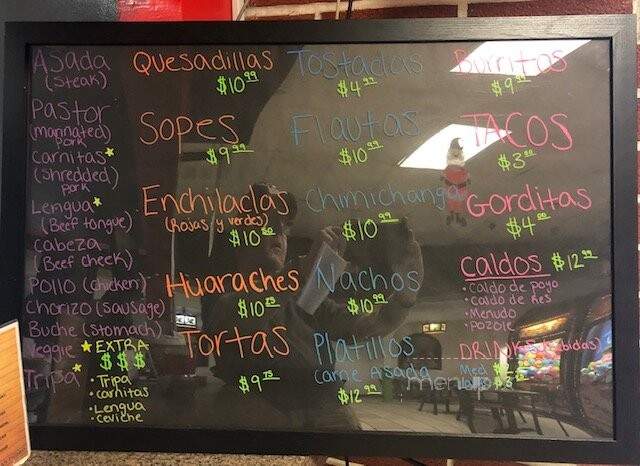 Asada
(steak)
Pastor
(marinated)
pork
Carnitas*
(shredded)
pork
Lengua*
(Beef tongue)
Cabeza
(Beef cheek)
Pollo (chicken)
Chorizo (sausage)
Buche (stomach)
Veggie
Tripa*
* EXTRA
$ $ $
• Tripa
• carnitas
• Lengua
• ceviche
Quesadillas
$10.99
Sopes
$9.99
Enchiladas
(Rojas y verdes)
$10.50
Huaraches
$10.75
Tortas
$9.75
Tostadas
$4
Flautas
$10.99
Chimichanga
$10.99
Nachos
$10.99
Platillos
Carne Asada
$12.99
Burritos
$9
TACOS
$3
Gorditas
$4.00
Caldos $12.99
• Caldo de poyo
• caldo de Res
• Menudo
• Pozole
DRINKS (bebidas)
Med
menu